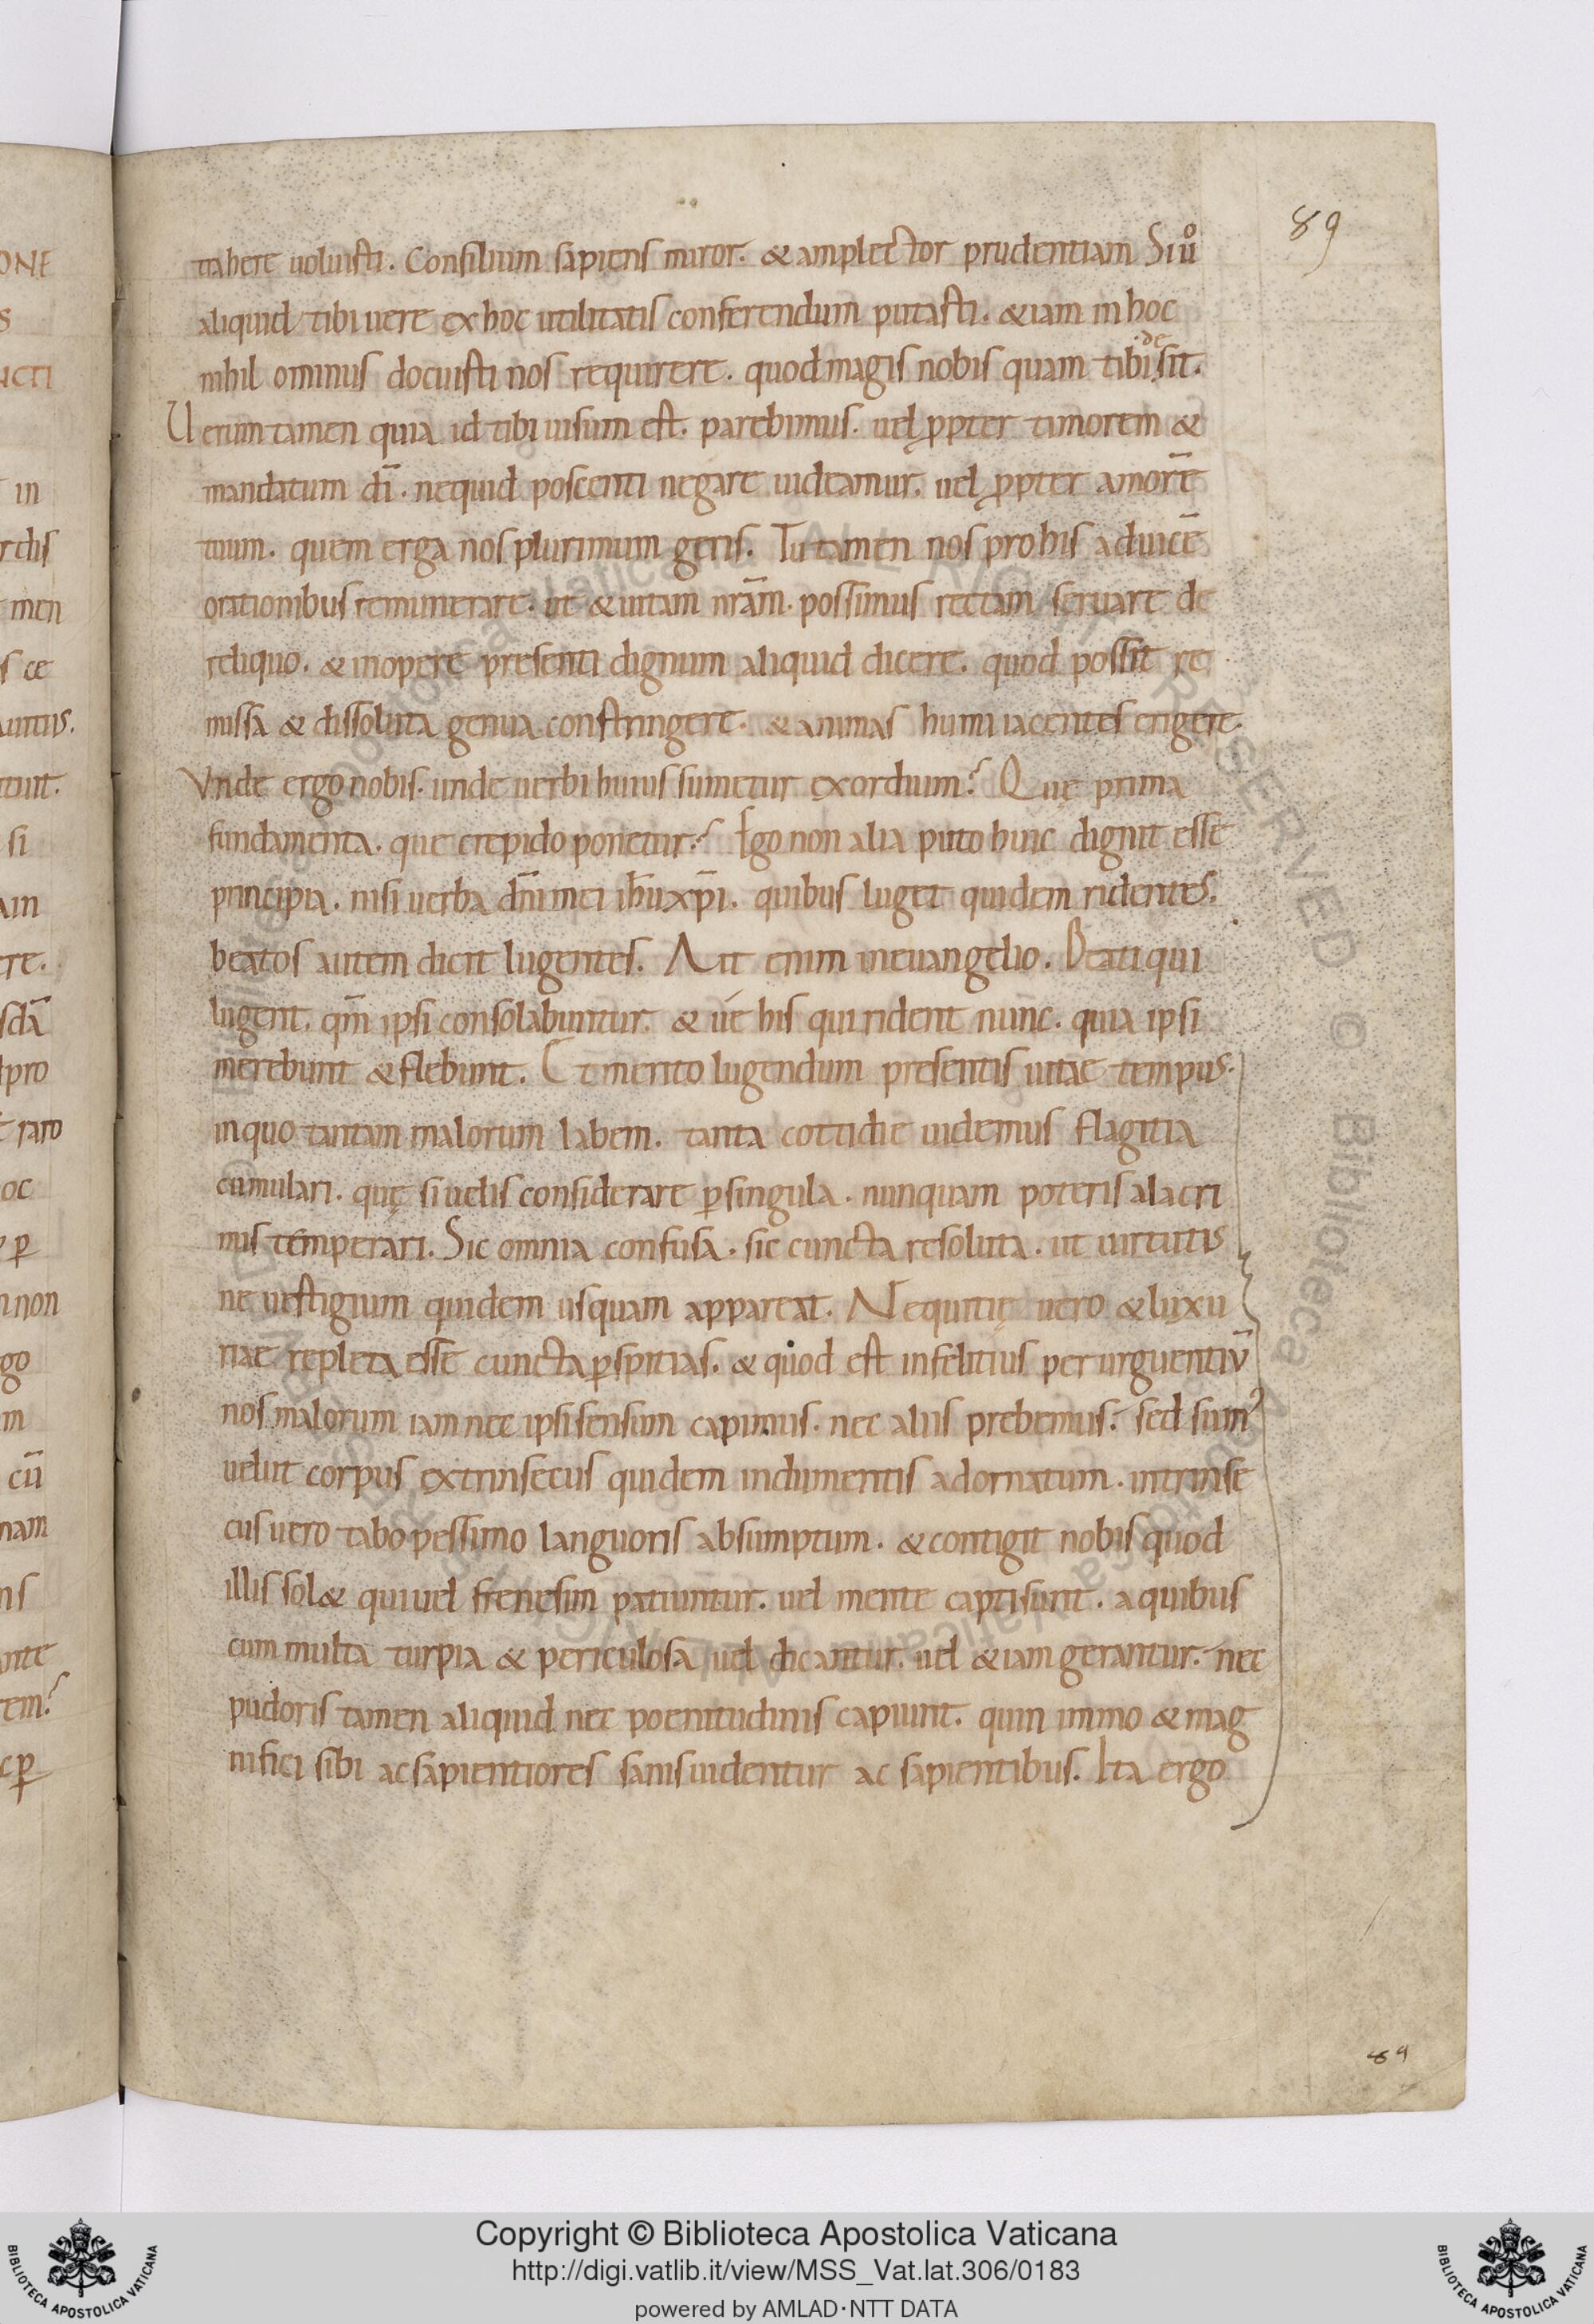 89
trahere uoluisti. Consilium sapiens miror. & amplector prudentiam Si ů
aliquid tibi uere ex hoc utilitatis conferendum putasti. &iam in hoc
nihil ominus docuisti nos requirere. quod magis nobis quam tibi desit.
Uerumtamen quia id tibi uisum est. parebimus. uel ꝓpter timorem &
mandatum dī. nequid poscenti negare uideamur. uel ꝓpter amorē
tuum. quem erga nos plurimum geris. Tu tamen nos pro his ad uicē
orationibus remunerare. ut & uitam nrām. possimus rectam seruare de
reliquo. & in opere presenti dignum aliquid dicere. quod possit re
missa & dissoluta genua constringere. & animas humi iacentes erigere.
Vnde ergo nobis. unde uerbi huius sumetur exordium? Quę prima
fundamenta. que crepido ponetur? Ego non alia puto hinc dignit esse
principia. nisi uerba dn̄i mei ih̄u xp̄i. quibus luget quidem ridentes.
beatos autem dicit lugentes. Ait enim in euangelio. Beati qui
lugent. qm̄ ipsi consolabuntur. & ué his qui rident nunc. quia ipsi
merebunt & flebunt. Et merito lugendum presentis uitae tempus.
in quo tantam malorum labem. tanta cottidie uidemus flagitia
cumulari. quę si uelis considerare ꝑ singula. nunquam poteris a lacri
mis temperari. Sic omnia confusa. sic cuncta resoluta. ut uirtutis
ne uestigium quidem usquam appareat. Nequitię uero & luxu
riae repleta esse cuncta ꝑspitias. & quod est infelitius per urguentiū
nos malorum iam nec ipsi sensum capimus. nec aliis prebemus. sed sum᾽
uelut corpus extrinsecus quidem indumentis adornatum. intrinse
cus uero tabo pessimo languoris absumptum. & contigit nobis quod
illis sol& qui uel frenesim patiuntur. uel mente capti sunt. a quibus
cum multa turpia & periculosa uel dicantur. uel &iam gerantur. nec
pudoris tamen aliquid nec poenitudinis capiunt. quin immo & mag
nifici sibi ac sapientiores sanis uidentur ac sapientibus. Ita ergo
89
Copyright © Biblioteca Apostolica Vaticana
http://digi.vatlib.it/view/MSS_Vat.lat.306/0183
powered by AMLAD·NTT DATA